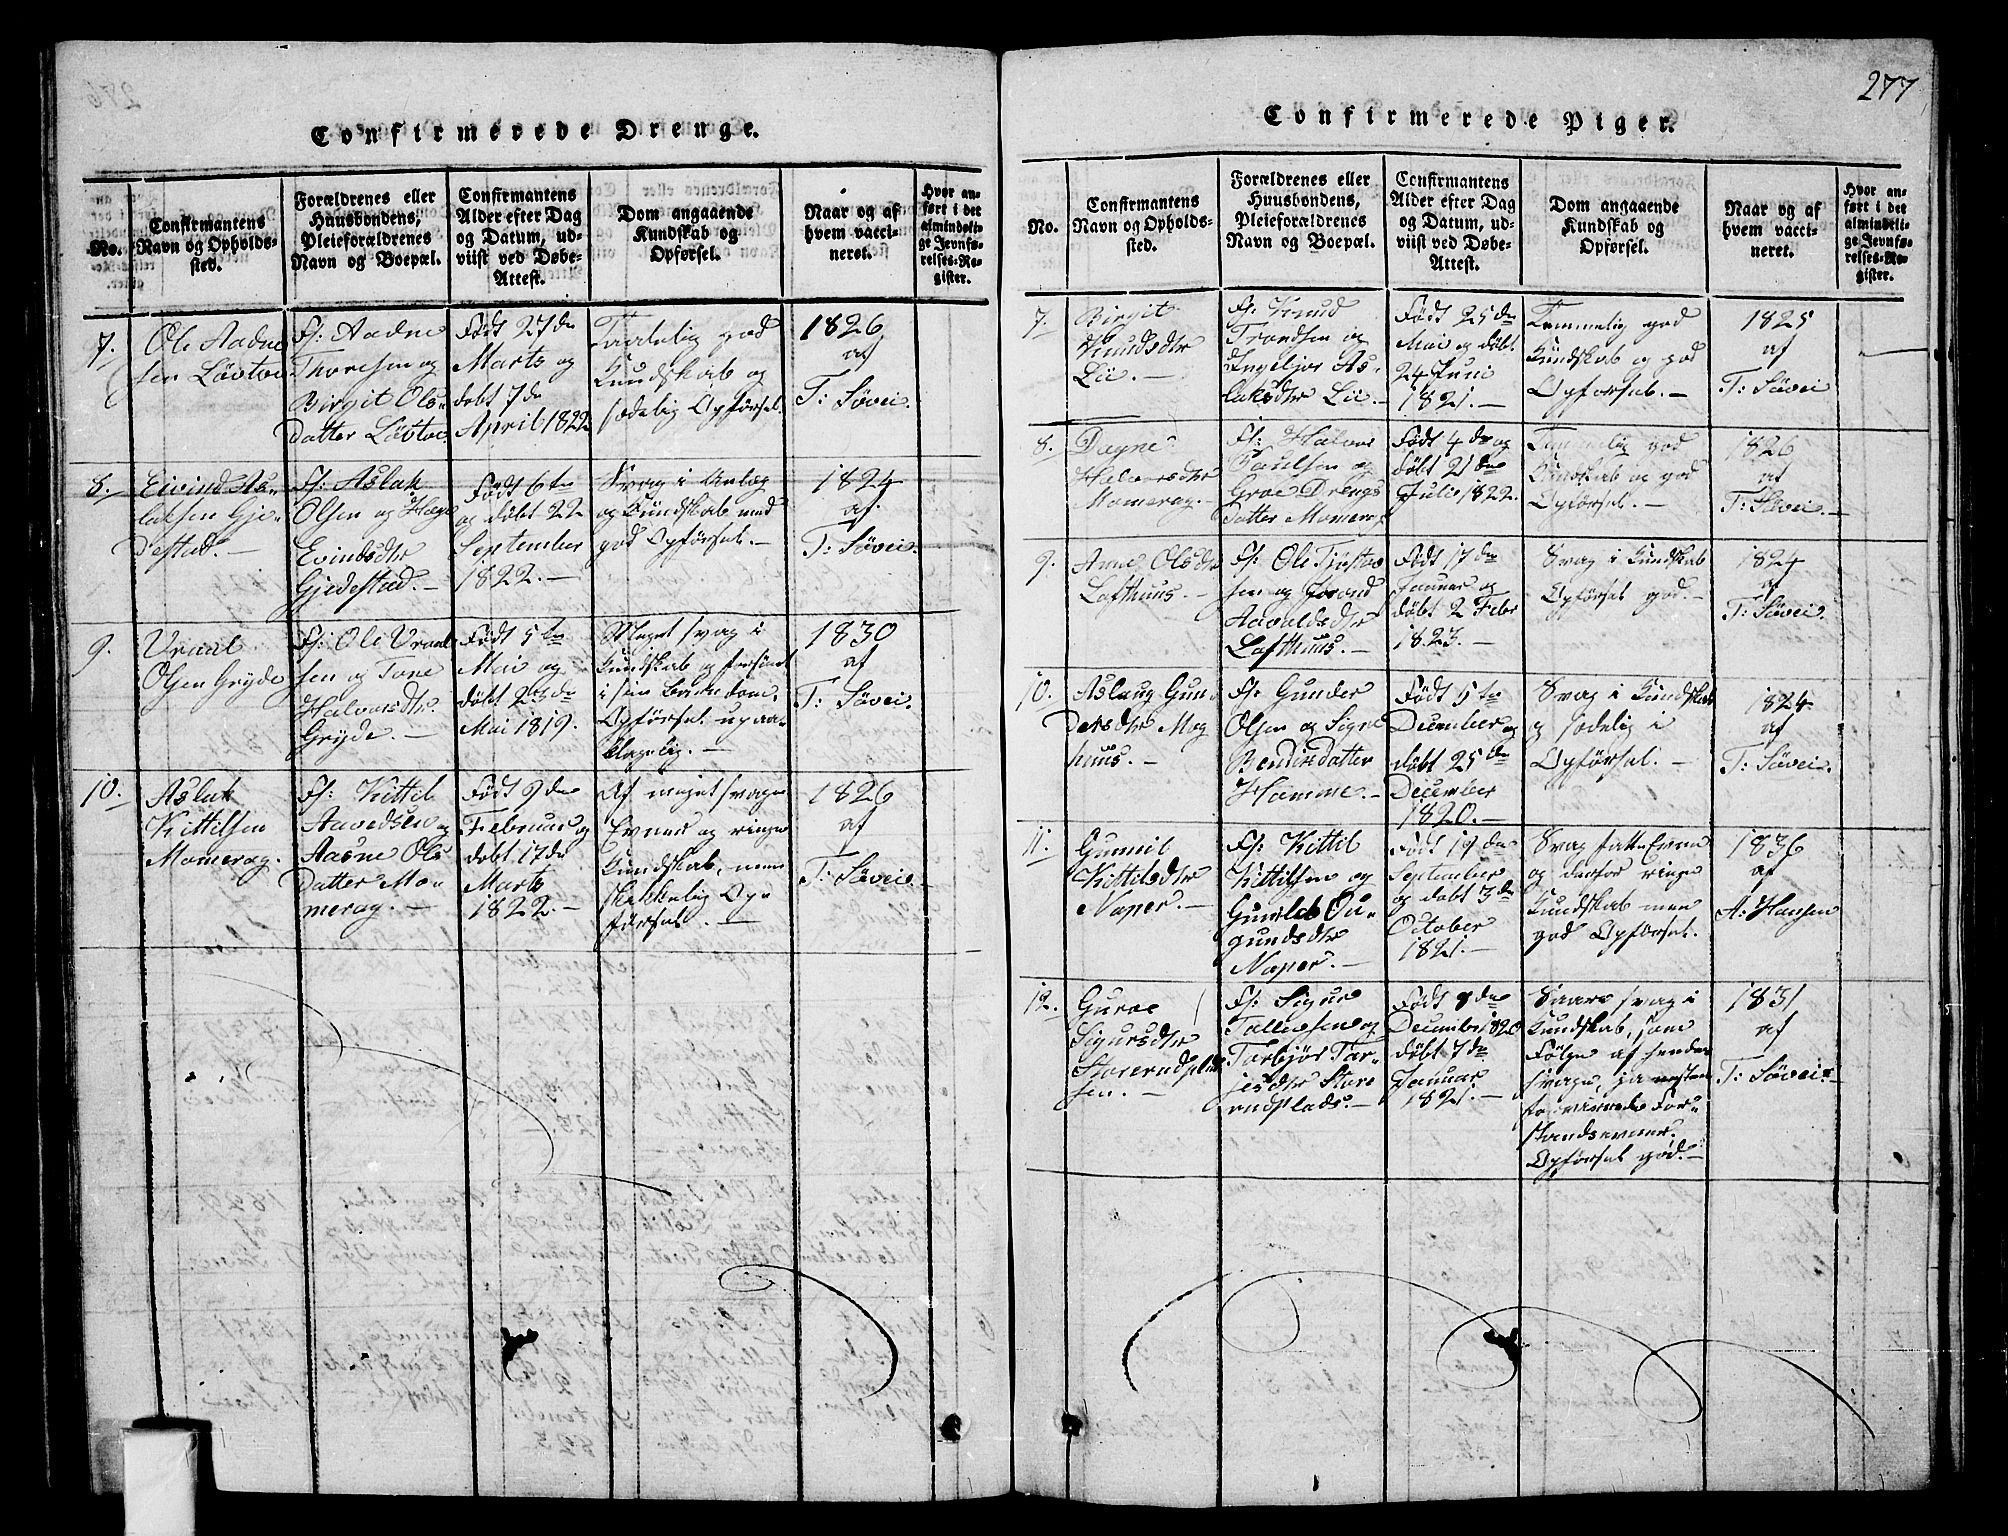 277
Confirmerede Drenge.
No.
Confirmantens
Navn og Opholds-
sted.
Forældrenes eller
Huusbondens,
Pleieforældrenes
Navn og Boepæl.
Confirmantens
Alder efter Dag
og Datum, ud-
viist ved Døbe-
Attest.
Dom angaaende
Kundskab og
Opførsel.
Naar og af
hvem vacci-
neret.
Hvor an-
ført i det
almindeli-
ge Jevnfø-
relses-Re-
gister.
7.
Ole Aadne
sen Løvtve
F: Aadne
Thoresen og
Birgit Ols-
datter Løvtve
Født 27 de
Marts og
døbt 7 de
April 1822
Taalelig god
Kundskab og
sædelig Opførsel.
1826
af
T: Søvei.
8.
Eivind As-
laksen Gje-
destad.
F: Aslak
Olsen og Hæge
Evindsdtr
Gjedestad.
Født 6te
og døbt 22
September
1822.
Svag i Anlæg
og Kundskab med
god Opførsel.
1824
af
T: Søvei.
9.
Vraal
Olsen Gryde
F: Ole Vraal
sen og Tone
Halvorsdtr
Gryde.
Født 5te
Mai og
døbt 23 de
Mai 1819.
Meget svag i
Kundskab og forsømt
i sin Barndom.
Opførsel upaa-
klagelig.
1830
af
T: Søvei.
10.
Aslak
Kittilsen
Momerag.
F: Kittil
Aavedsen og
Aasne Ols
datter Mo-
merag.
Født 9 de
Februar og
døbt 17 de
Marts
1822.
Af meget svage
Evner og ringe
Kundskab, men
skikkelig Op-
førsel.
1826
af
T: Søvei.
Confirmerede Piger.
No.
Confirmantens
Navn og Opholds-
sted.
Forældrenes eller
Huusbondens,
Pleieforældrenes
Navn og Boepæl.
Confirmantens
Alder efter Dag
og Datum, ud-
viist ved Døbe-
Attest.
Dom angaaende
Kundskab og
Opførsel.
Naar og af
hvem vacci-
neret.
Hvor an-
ført i det
almindeli-
ge Jevnfø-
relses-Re-
gister.
7.
Birgit
Knudsdtr
Lie.
F: Knud
Trondsen og
Ingebjør As-
laksdtr Lie.
Født 25 de
Mai og døbt
24 Juni
1821.
Temmelig god
Kundskab og god
Opførsel.
1825
af
T: Søvei
8.
Dagne
Halvorsdtr
Momerag.
F: Halvor
Paulsen og
Groe Drengs
datter Momerag
Født 4 de og
døbt 21 de
Julii 1822.
Temmelig god
Kundskab og god
Opførsel.
1826
af
T: Søvei.
9.
Anne Olsdtr
Lofthuus.
F: Ole Tjøstov
sen og Jorand
Aavaldsdtr
Lofthuus.
Født 17 de
Januar og
døbt 2 Febr
1823.
Svag i Kundskab
Opførsel god.
1824
af
T: Søvei.
10.
Aslaug Gun
dersdtr Mog
huus.
F: Gunder
Olsen og Signe
Bendixdatter
Hamme.
Født 5te
December og
døbt 25 de
December
1820.
Svag i Kundskab
og sædelig i
Opførsel.
1824
af
T: Søvei.
11.
Gunnil
Kittilsdtr
Naper.
F: Kittil
Kittilsen og
Gunild Ou-
gundsdtr
Naper.
Født 19 de
September
og døbt 3 de
October
1821.
Svag Fatte Evne
og derfor ringe
Kundskab men
god Opførsel.
1836
af
A: Hansen
12.
Guroe
Sigursdtr
Storerndplad
sen.
F: Sigur
Tallefsen og
Torbjør Tar-
jesdtr Store
rndplads.
Født 8 de
December 1820
døbt 7 de
Januar
1821.
Saare svag i
Kundskab, som
Følge af hendes
svage, ja næsten
forvirrede For-
standsevner.
Opførsel god.
1831
af
T: Søvei.